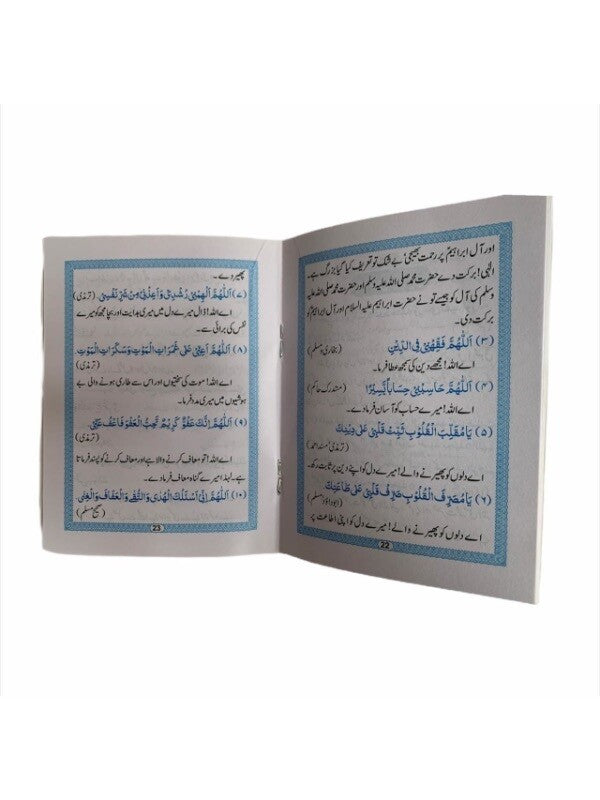 اور آل ابراہیمؑ پر رحمت بھیجی بے شک تو تعریف کیا گیا بزرگ ہے۔
الٰہی! برکت دے حضرت محمد صلی اللہ علیہ وسلم اور حضرت محمد صلی اللہ علیہ
وسلم کی آل کو جیسے تو نے حضرت ابراہیم علیہ السلام اور آل ابراہیمؑ کو
برکت دی۔
(۳) اَللّٰهُمَّ فَقِّهْنِیْ فِی الدِّیْنِ (بخاری، مسلم)
اے اللہ! مجھے دین کی سمجھ عطا فرما۔
(۴) اَللّٰهُمَّ حَاسِبْنِیْ حِسَابًا یَّسِیْرًا (مستدرک حاکم)
اے اللہ! میرے حساب کو آسان فرما دے۔
(۵) یَا مُقَلِّبَ الْقُلُوْبِ ثَبِّتْ قَلْبِیْ عَلٰی دِیْنِكَ
(ترمذی، مسند احمد)
اے دلوں کو پھیرنے والے! میرے دل کو اپنے دین پر ثابت رکھ۔
(۶) یَا مُصَرِّفَ الْقُلُوْبِ صَرِّفْ قَلْبِیْ عَلٰی طَاعَتِكَ
(ابوداؤد، مسلم)
اے دلوں کو پھیرنے والے! میرے دل کو اپنی اطاعت پر
22
پھیر دے۔
(۷) اَللّٰهُمَّ اَلْهِمْنِیْ رُشْدِیْ وَ اَعِذْنِیْ مِنْ شَرِّ نَفْسِیْ (ترمذی)
اے اللہ! ڈال میرے دل میں میری ہدایت اور بچا مجھ کو میرے
نفس کی برائی سے۔
(۸) اَللّٰهُمَّ اَعِنِّیْ عَلٰی غَمَرَاتِ الْمَوْتِ وَسَكَرَاتِ الْمَوْتِ
(ترمذی)
اے اللہ! موت کی سختیوں اور اس سے طاری ہونے والی بے
ہوشیوں میں میری مدد فرما۔
(۹) اَللّٰهُمَّ اِنَّكَ عَفُوٌّ كَرِیْمٌ تُحِبُّ الْعَفْوَ فَاعْفُ عَنِّیْ
(ترمذی)
اے اللہ! تو معاف کرنے والا ہے اور معاف کرنے کو پسند فرماتا
ہے۔ لہٰذا میرے گناہ معاف فرما دے۔
(۱۰) اَللّٰهُمَّ اِنِّیْ اَسْئَلُكَ الْهُدٰی وَالتُّقٰی وَالْعَفَافَ وَالْغِنٰی
(صحیح مسلم)
23